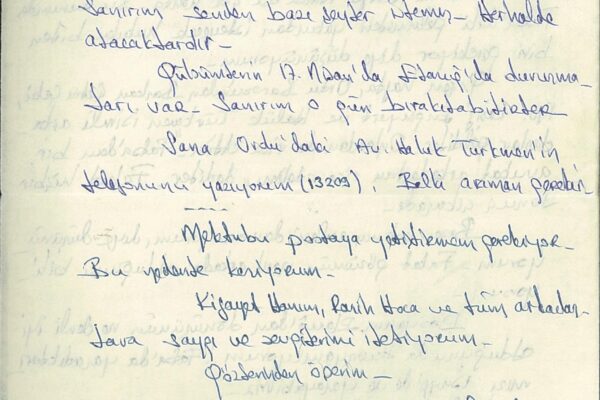 Sanırım senden bazı şeyler istemiş_ Herhalde
atacaklardır_
Gülbünlerin 17. Nisan'da Elazığ'da duruşma_
ları var_ Sanırım o gün bırakılabilirler
Sana Ordu'daki Av. Haluk Türkmen'in
telefonunu yazıyorum (13209), Belki araman gerekir_
-----
Mektubu postaya yetiştirmem gerekiyor_
Bu nedenle kesiyorum_
Hanım, Hoca ve tüm arkadaş_
lara saygı ve sevgilerimi iletiyorum_
Gözlerinden öperim_